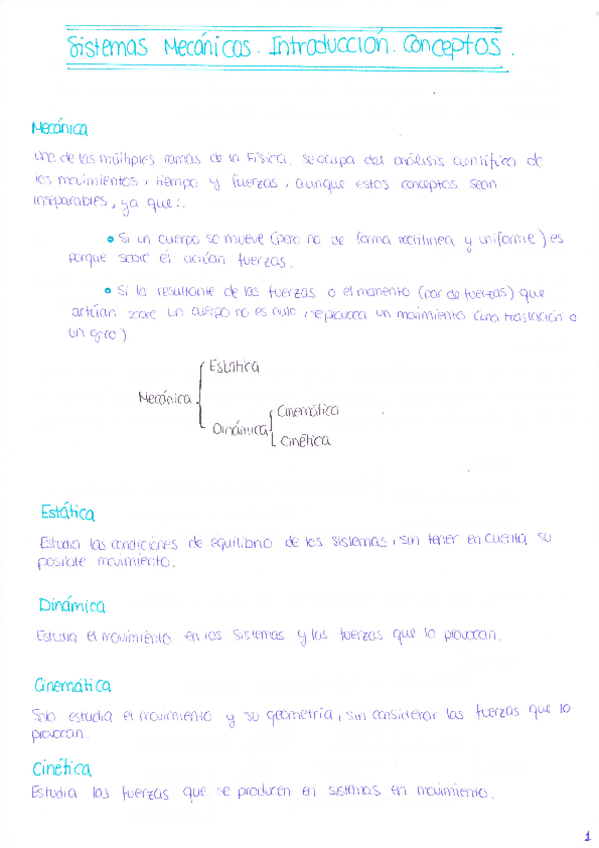 Sistemas Mecánicos. Introducción. Conceptos.
Mecánica
Una de las múltiples ramas de la Física. Se ocupa del análisis científico de
los movimientos, tiempo y fuerzas, aunque estos conceptos sean
inseparables, ya que:
• Si un cuerpo se mueve (pero no de forma rectilínea y uniforme) es
porque sobre él actúan fuerzas.
• Si la resultante de las fuerzas o el momento (par de fuerzas) que
actúan sobre un cuerpo no es nulo, se provoca un movimiento (una traslación o
un giro)
Estática
Mecánica
Dinámica
Cinemática
Cinética
Estática
Estudia las condiciones de equilibrio de los sistemas, sin tener en cuenta su
posible movimiento.
Dinámica
Estudia el movimiento en los sistemas y las fuerzas que lo provocan.
Cinemática
Solo estudia el movimiento y su geometría, sin considerar las fuerzas que lo
provocan.
Cinética
Estudia las fuerzas que se producen en sistemas en movimiento.
1